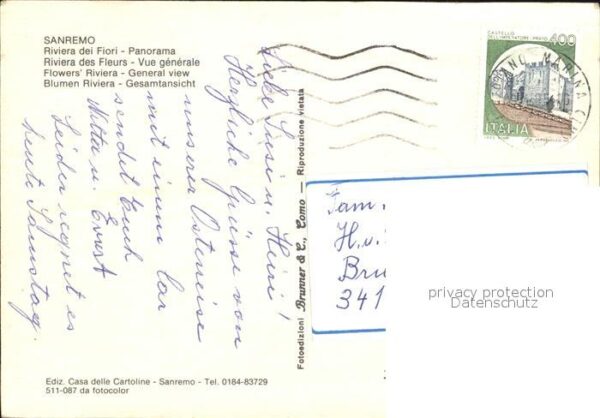 SANREMO
Riviera dei Fiori - Panorama
Riviera des Fleurs - Vue générale
Flowers' Riviera - General view
Blumen Riviera - Gesamtansicht
Liebe Susi u. Heini!
Herzliche Grüsse von
unserer Osterreise
mit einem Car
sendet Euch
Ernst
Leider regnet es
heute Samstag.
Fotoedizioni Brunner & C., Como — Riproduzione vietata
CASTELLO
DELL'IMPERATORE - PRATO
400
ITALIA
MARINA
Fam.
H.u.
Bru
341
privacy protection
Datenschutz
Ediz. Casa delle Cartoline - Sanremo - Tel. 0184-83729
511-087 da fotocolor